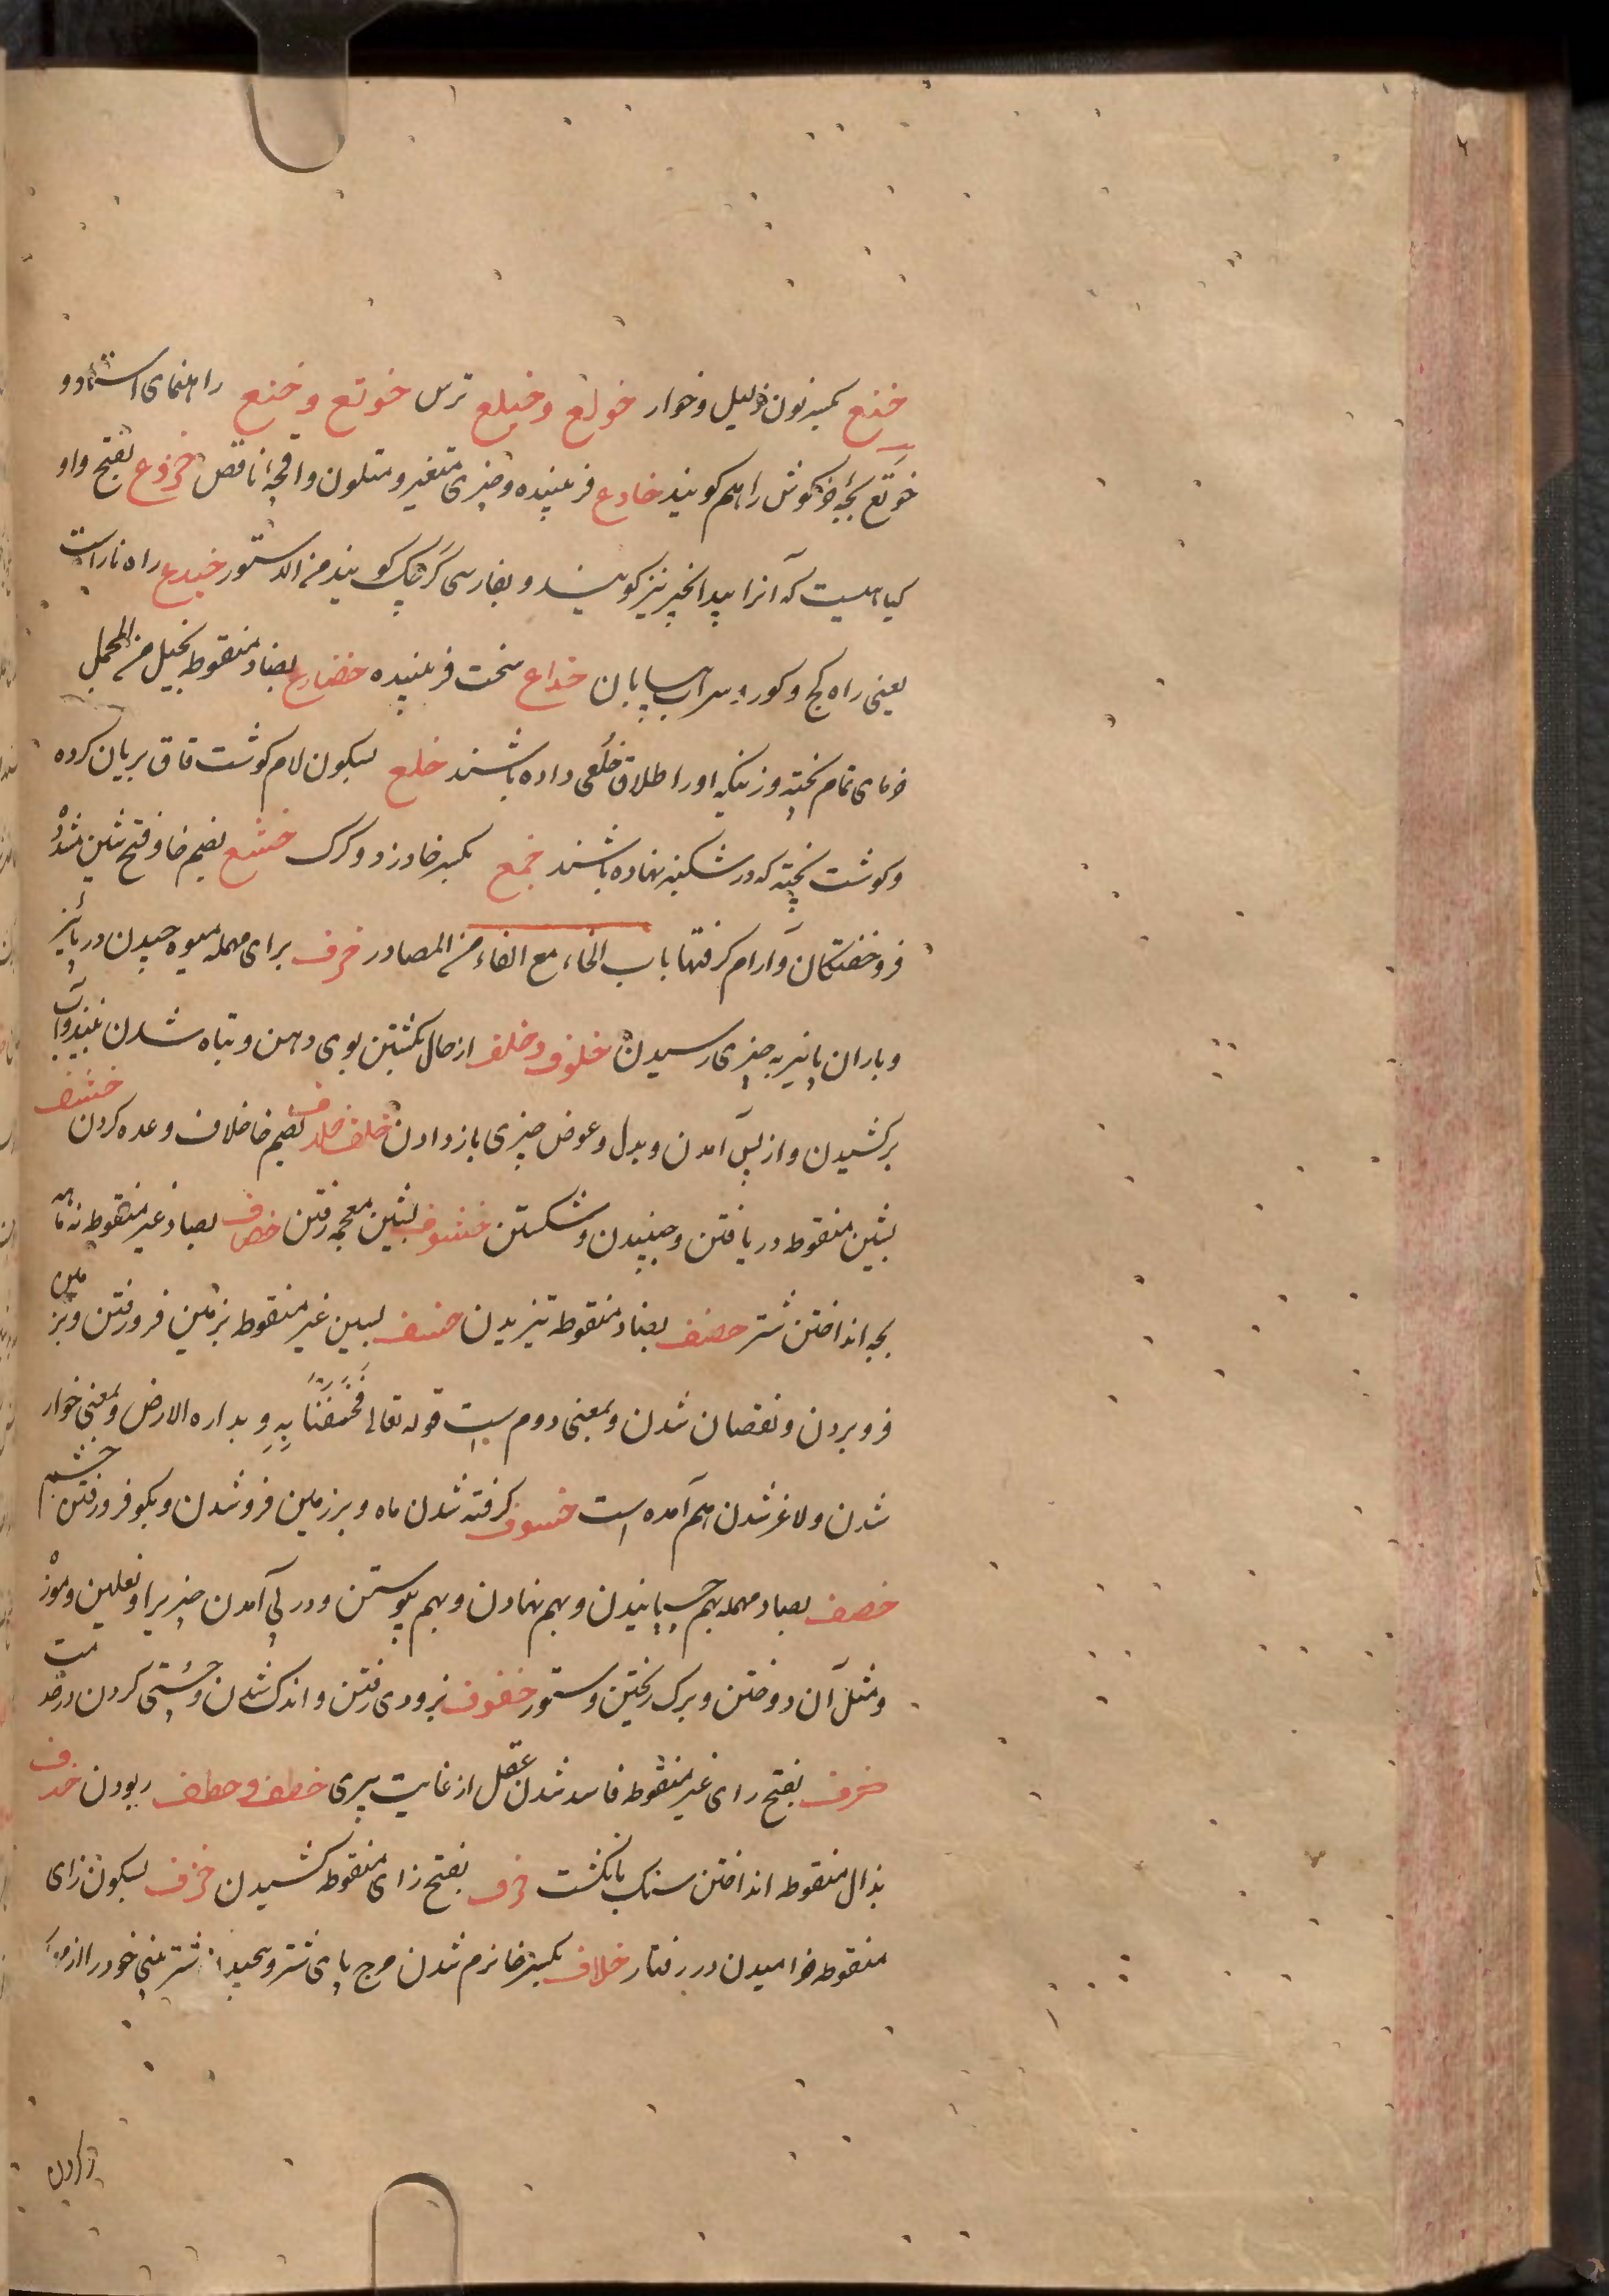 خنع بکسر نون ذلیل و خوار خولع و خیلع ترس خوتع و ختع راهنمای استاد و
خوتع بچه خرکوش را هم کویند خادع فریبنده و چیزی متغیر و متلون و اقچه ناقص خروع بفتح واو
کیاهیست که آنرا بیدانجیر نیز کویند و بفارسی کرچک کویند من الدستور خیدع راه ناراست
یعنی راه کج و کور و سراب بیابان خداع سخت فریبنده خضارع بضاد منقوطه بخیل من المجمل
خرمای تمام پخته و زنیکه او را طلاق خلعی داده باشند خلع بسکون لام کوشت قاق بریان کرده
و کوشت پخته که در شکنبه نهاده باشند خمع بکسر خا درزد و کرک خشع بضم خا و فتح شین مشدد
فروخفتکان و آرام کرفتها باب الخاء مع الفاء من المصادر خرف برای مهمله میوه چیدن در پائیز
و باران پائیز به چیزی رسیدن خلوف و خلف از حال بکشتن بوی دهن و تباه شدن نبیذ و آب
برکشیدن و از پس آمدن و بدل و عوض چیزی باز دادن خلف خلاف بضم خا خلاف وعده کردن خشف
بشین منقوطه در یافتن و جنبیدن و شکستن خشوف بشین معجمه رفتن خصاف بصاد غیر منقوطه نه ماهه
بچه انداختن شتر خضف بضاد منقوطه تیزیدن خسف بسین غیر منقوطه بزمین فرورفتن و بزمین
فروبردن و نقصان شدن و بمعنی دوم است قوله تعالی فخسفنا به و بداره الارض و بمعنی خوار
شدن و لاغر شدن هم آمده است خسوف کرفته شدن ماه و بر زمین فروشدن و بکو فرورفتن چشم
خصف بصاد مهمله بهم چسپانیدن و بهم نهادن و بهم پیوستن و در پی آمدن چیزیرا و نعلین و موزه
و مثل آن دوختن و برک ریختن و ستور خفوف بزودی رفتن و اندک شدن و چستی کردن در خدمت
خرف بفتح رای غیر منقوطه فاسد شدن عقل از غایت پیری خطف و خطف ربودن خذف
بذال منقوطه انداختن سنک بانکشت خزف بفتح زای منقوطه کشیدن خزف بسکون زای
منقوطه خرامیدن در رفتار خلاف بکسر خا نرم شدن مرج پای شتر و شتر بینی خود را از مهار
زکردن